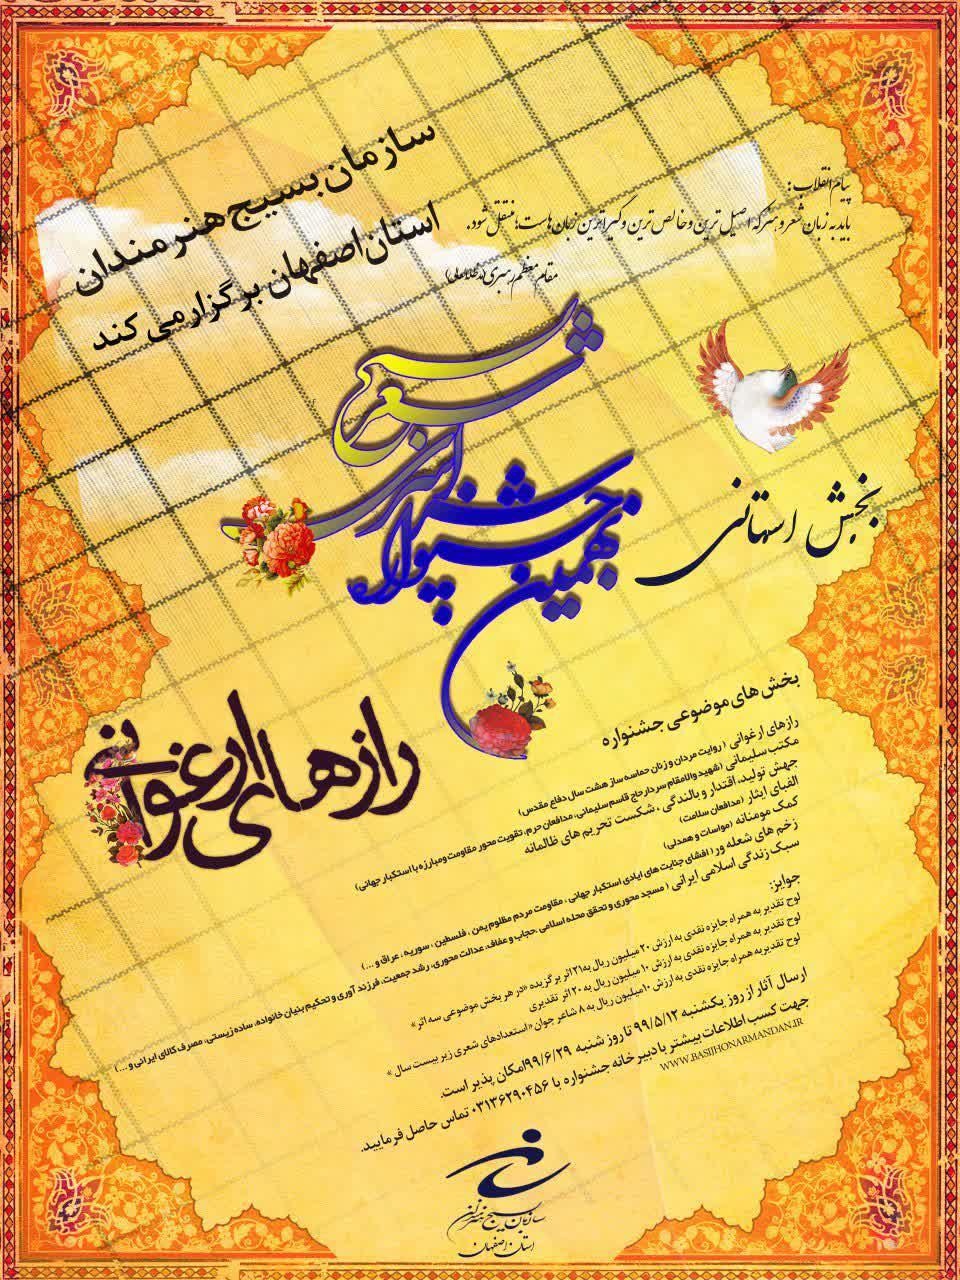 سازمان بسیج هنرمندان
استان اصفهان برگزار می کند
پیام انقلاب:
باید به زبان شعر و هنر که اصیل ترین و خالص ترین و گیراترین زبان هاست؛ منتقل شود.
مقام معظم رهبری (مدظله العالی)
نهمین جشنواره سراسری شعر بسیج
بخش استانی
رازهای ارغوانی
بخش های موضوعی جشنواره
رازهای ارغوانی (روایت مردان و زنان حماسه ساز هشت سال دفاع مقدس)
مکتب سلیمانی (شهید والامقام سردار حاج قاسم سلیمانی، مدافعان حرم، تقویت محور مقاومت و مبارزه با استکبار جهانی)
جهش تولید، اقتدار و بالندگی، شکست تحریم های ظالمانه
الفبای ایثار (مدافعان سلامت)
کمک مومنانه (مواسات و همدلی)
زخم های شعله ور (افشای جنایت های ایادی استکبار جهانی، مقاومت مردم مظلوم یمن، فلسطین، سوریه، عراق و ...)
سبک زندگی اسلامی ایرانی (مسجد محوری و تحقق محله اسلامی، حجاب و عفاف، عدالت محوری، رشد جمعیت، فرزند آوری و تحکیم بنیان خانواده، ساده زیستی، مصرف کالای ایرانی و ...)
جوایز:
لوح تقدیر به همراه جایزه نقدی به ارزش ۲۰ میلیون ریال به ۲۱ اثر برگزیده «در هر بخش موضوعی سه اثر»
لوح تقدیر به همراه جایزه نقدی به ارزش ۱۰ میلیون ریال به ۲۰ اثر تقدیری
لوح تقدیر به همراه جایزه نقدی به ارزش ۱۰ میلیون ریال به ۸ شاعر جوان «استعدادهای شعری زیر بیست سال»
ارسال آثار از روز یکشنبه ۹۹/۵/۱۲ تا روز شنبه ۹۹/۶/۲۹ امکان پذیر است.
جهت کسب اطلاعات بیشتر با دبیر خانه جشنواره با ۰۳۱۳۶۲۹۰۴۵۶ تماس حاصل فرمایید.
WWW.BASIJHONARMANDAN.IR
سازمان بسیج هنرمندان
استان اصفهان